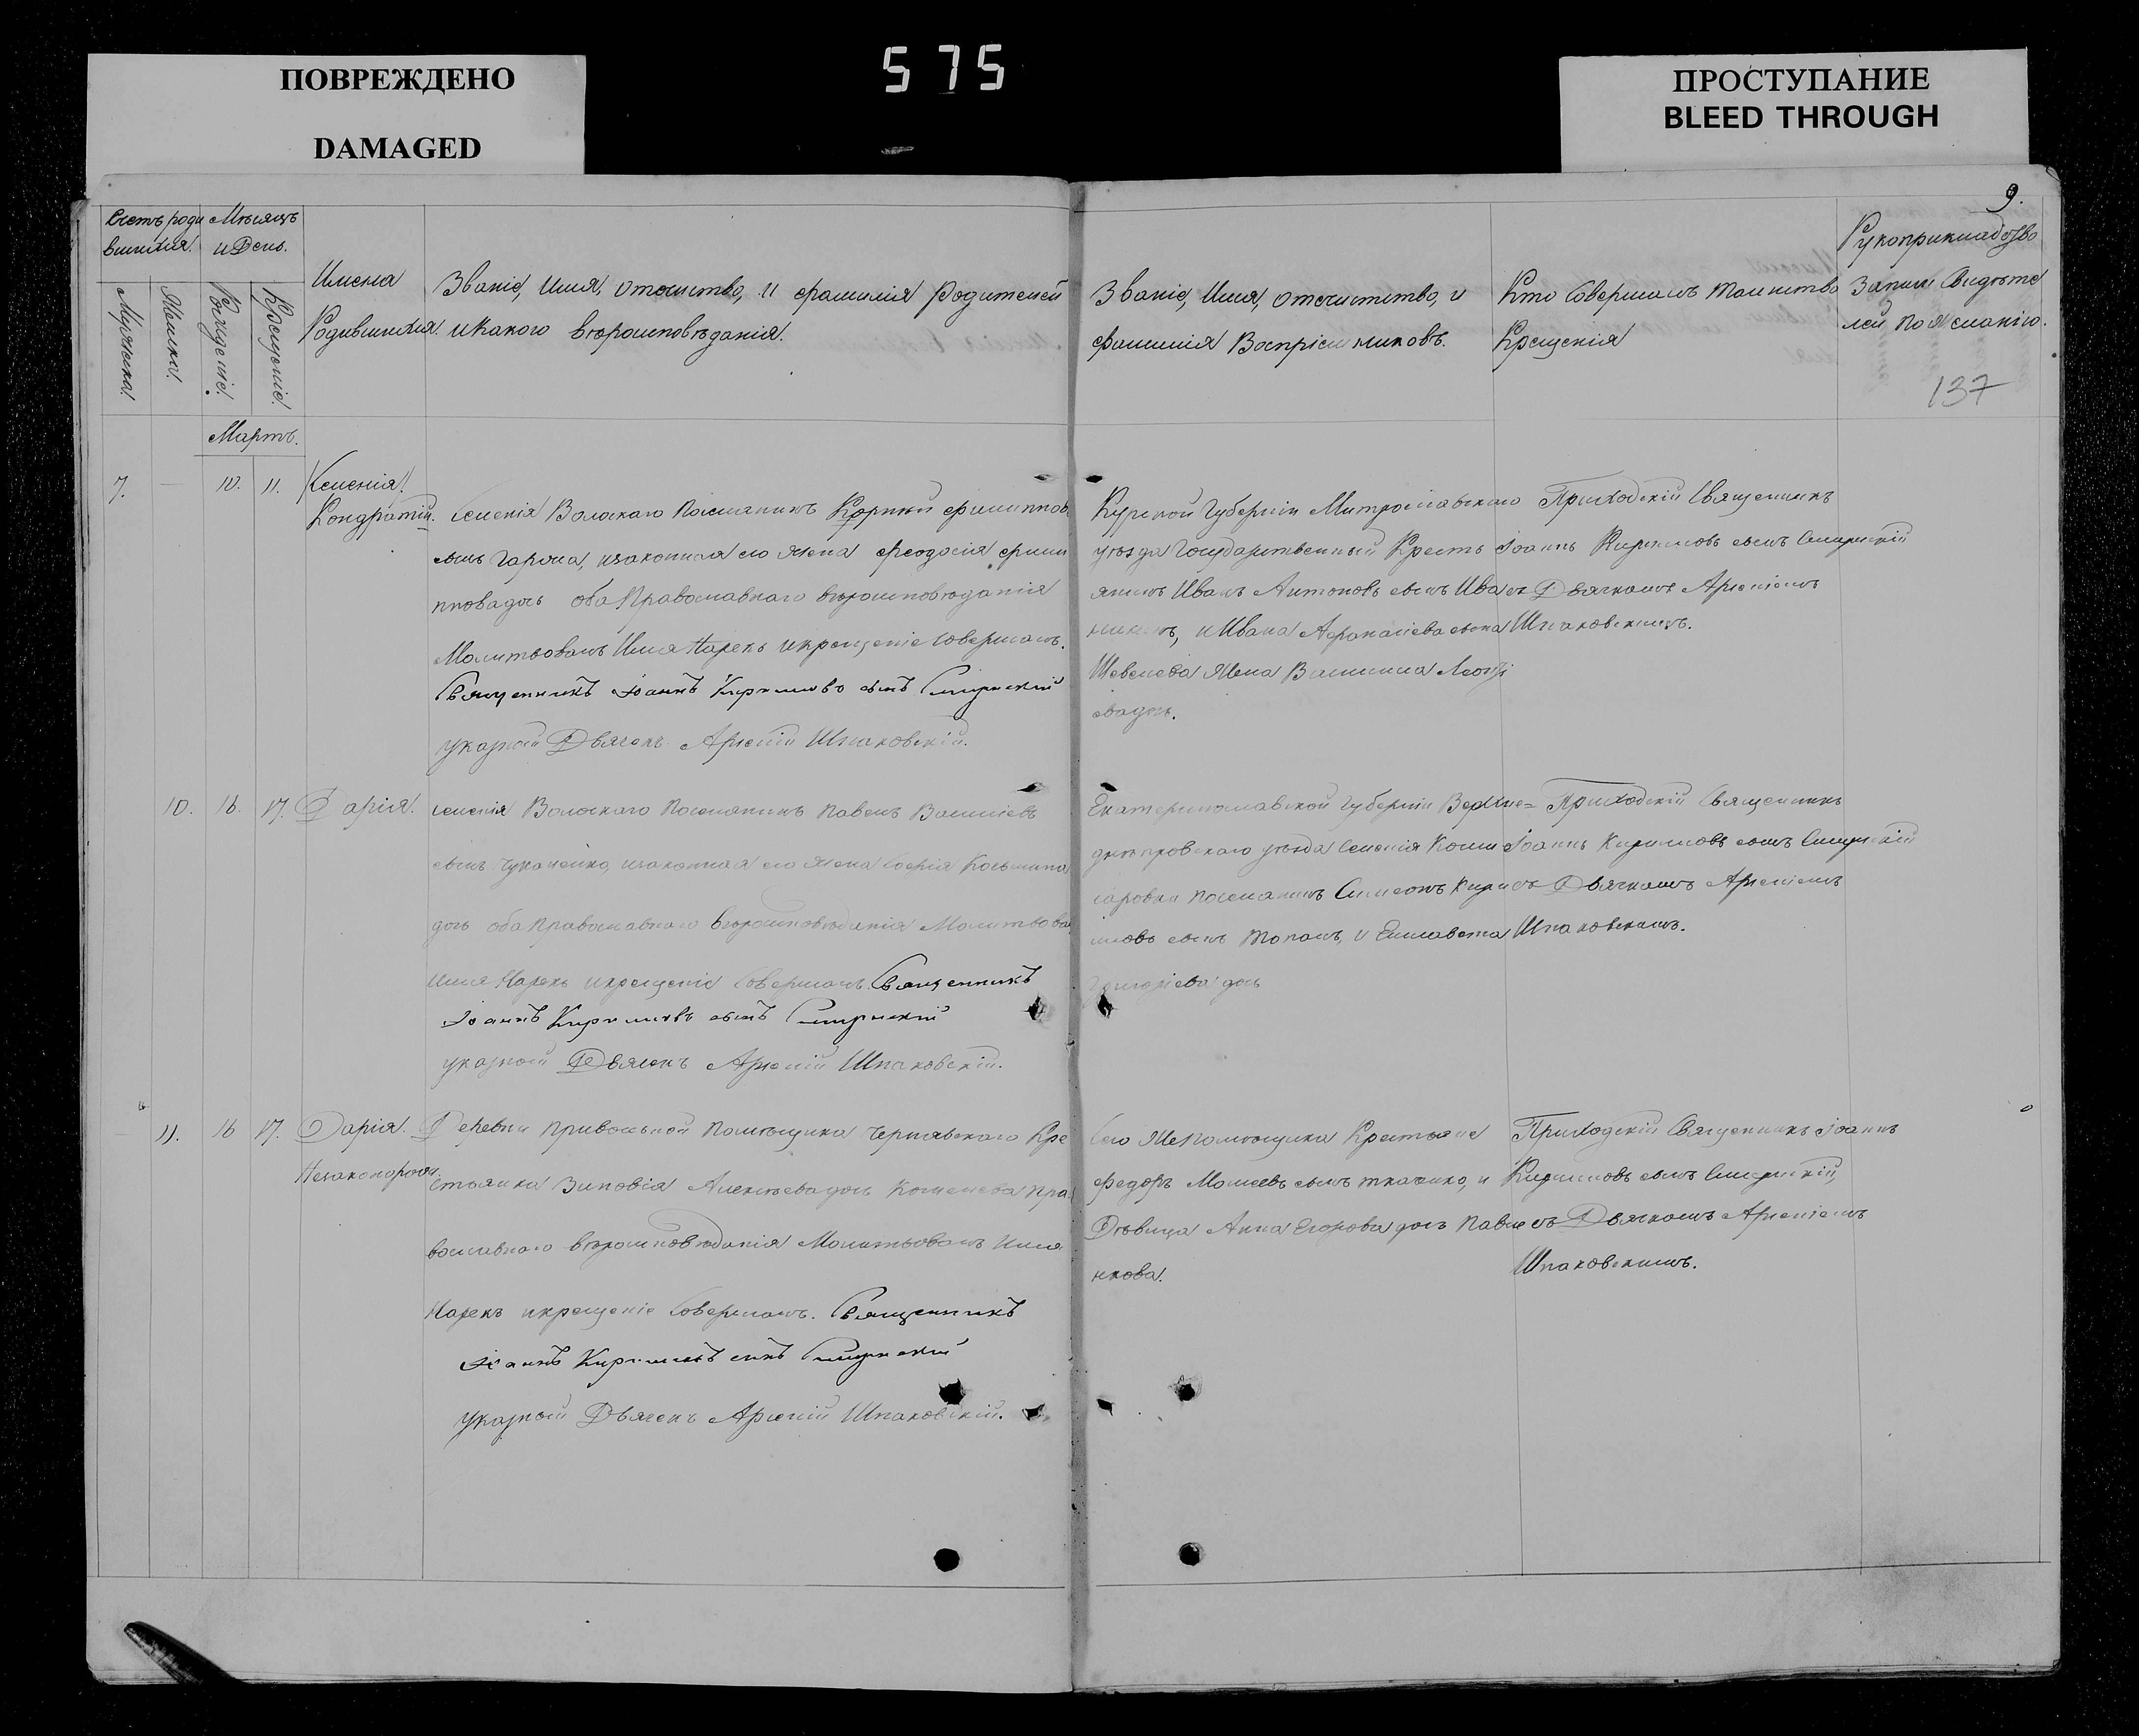 ПОВРЕЖДЕНО
DAMAGED
575
ПРОСТУПАНИЕ
BLEED THROUGH
9.
137
Счетъ роди
вшихся.
Мѣсяцъ
и День.
Мужеска.
Женска.
Рожденіе.
Крещеніе.
Имена
Родившихся.
Званіе, Имя, отечество, и фамилія Родителей
и какого вѣроисповѣданія.
Званіе, Имя, отечитство, и
фамилія Воспріемниковъ.
Кто Совершалъ таинство
Крещенія
Рукоприкладство
Записи Свидѣте
лей по желанію.
Мартъ.
7. 10. 11.
Кондратій.
селенія Волоскаго Поселянинъ Корній филиппов
сынъ и законная его жена феодосія фили
ппова дочь оба Православнаго вѣроисповѣданія
Молитвовалъ Имя Нарекъ и крещеніе Совершалъ.
Священникъ Іоаннъ Кириловъ сынъ
указной Дьячекъ Арсеній Шпаковскій.
Курской Губерніи
уѣзда Государственный Кресть
янинъ Иванъ Антоновъ сынъ
и Ивана Афанасіева сына
Шевелева Жена
ева дочь.
Приходскій Священникъ
Іоаннъ Кириловъ сынъ
съ Дьячкомъ Арсеніемъ
Шпаковскимъ.
10. 16. 17. Дарія.
селенія Волоскаго Поселянинъ Павелъ Василіевъ
сынъ и законная его жена Софія Косьмина
дочь оба Православнаго вѣроисповѣданія Молитвова
Имя Нарекъ и крещеніе Совершалъ. Священникъ
Іоаннъ Кириловъ сынъ
указной Дьячекъ Арсеній Шпаковскій.
Екатеринославской Губерніи Верхне=
днѣпровскаго уѣзда Селенія Коми
саровки поселянинъ Симеонъ Кири
ловъ сынъ и Елисавета
Григоріева дочь
Приходскій Священникъ
Іоаннъ Кириловъ сынъ
съ Дьячкомъ Арсеніемъ
Шпаковскимъ.
11. 16 17. Дарія.
Незаконорожд.
Деревни Привольной Помѣщика Чернявскаго Кре
стьянка Зиновія Алексѣева дочь Кошелева Пра
вославнаго вѣроисповѣданія Молитвовалъ Имя
Нарекъ и крещеніе Совершалъ. Священникъ
Іоаннъ Кириловъ сынъ
указной Дьячекъ Арсеній Шпаковскій.
Его Же Помѣщика Крестьяне
федоръ Моисеевъ сынъ Ткаченко, и
Дѣвица Анна Егорова дочь Павле
нкова.
Приходскій Священникъ Іоаннъ
Кириловъ сынъ
съ Дьячкомъ Арсеніемъ
Шпаковскимъ.